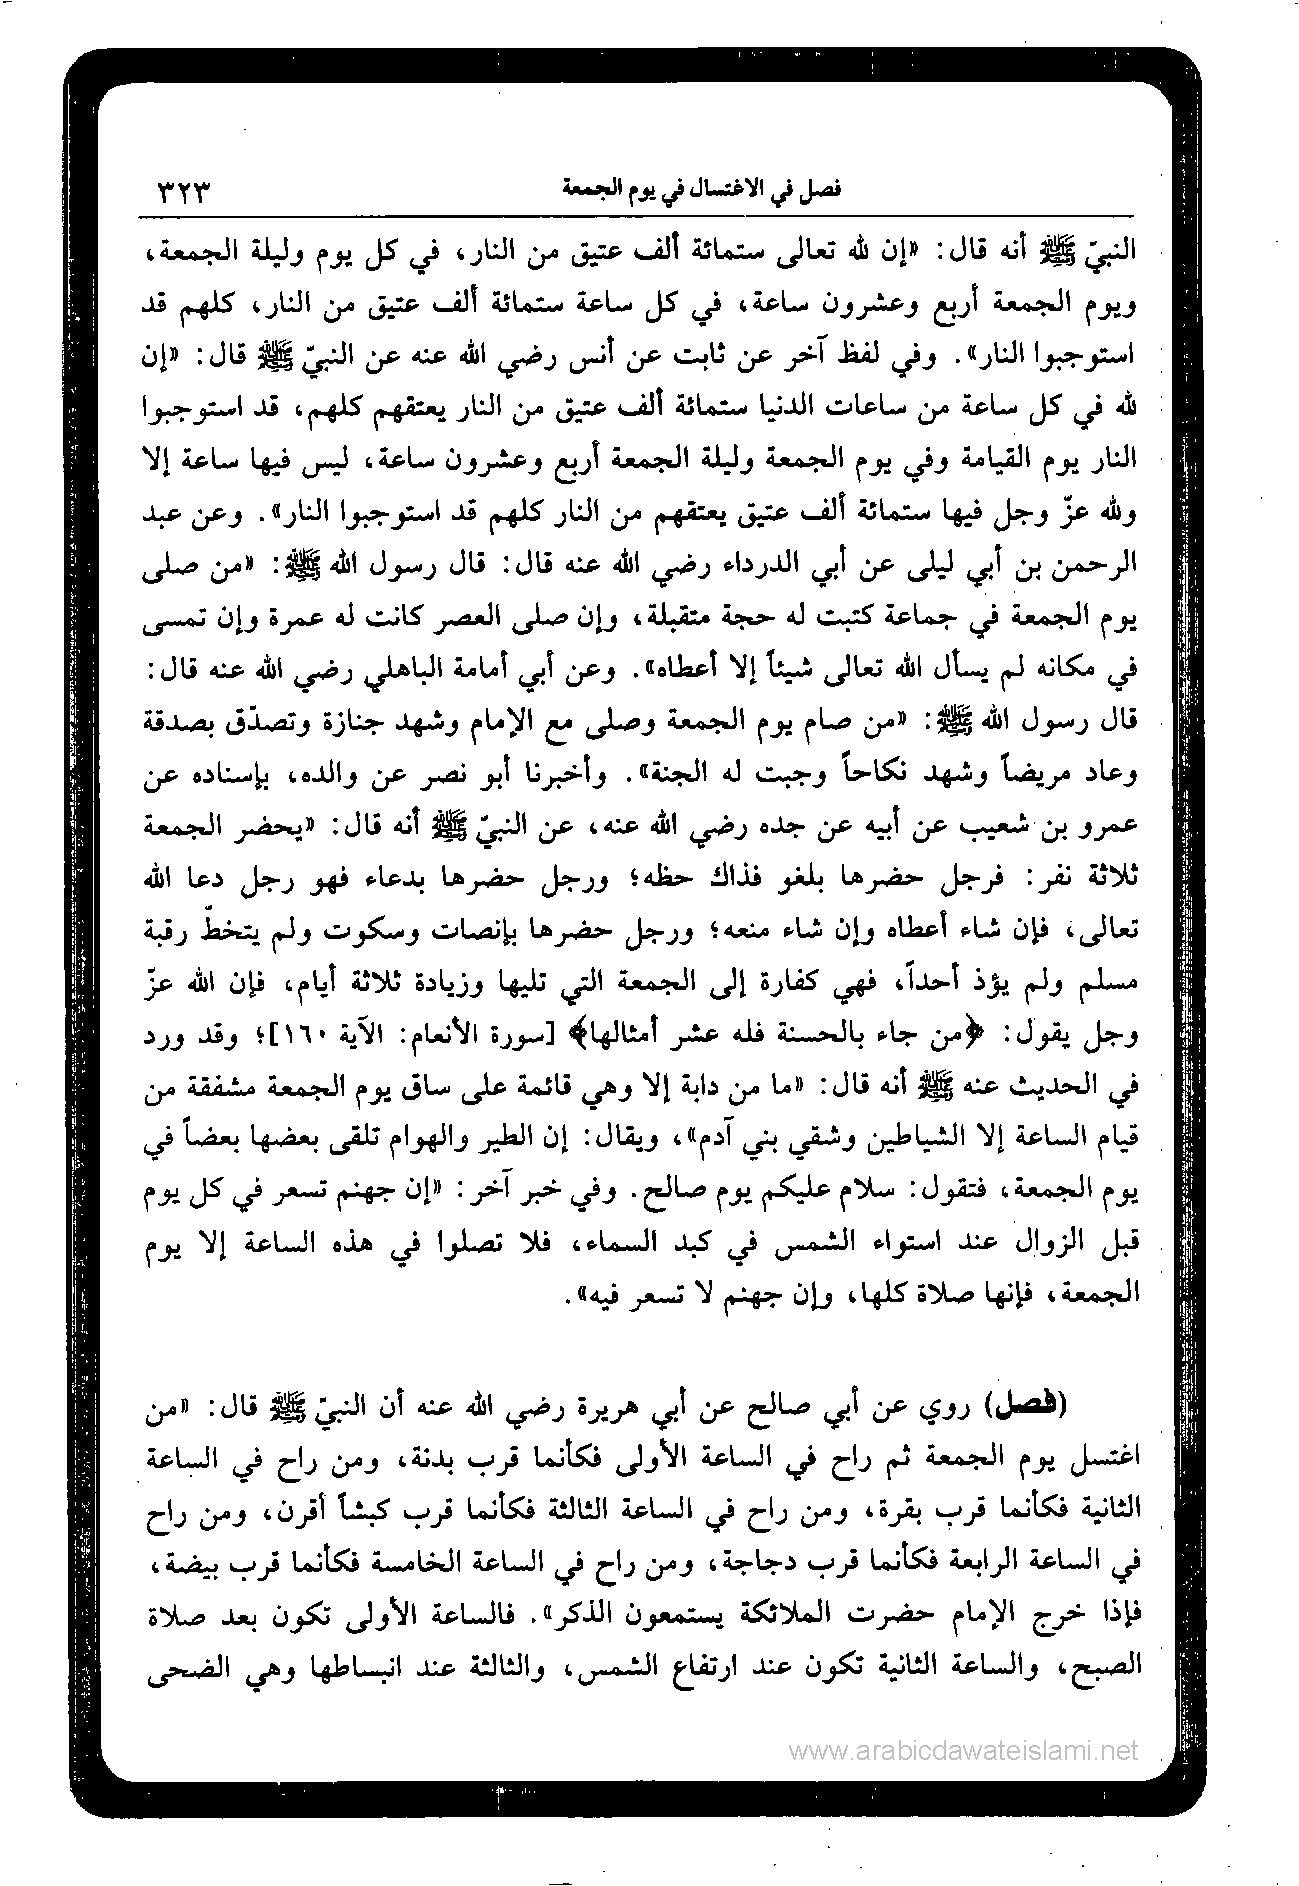 فصل في الاغتسال في يوم الجمعة ٣٢٣
النبيّ ﷺ أنه قال: «إن لله تعالى ستمائة ألف عتيق من النار، في كل يوم وليلة الجمعة،
ويوم الجمعة أربع وعشرون ساعة، في كل ساعة ستمائة ألف عتيق من النار، كلهم قد
استوجبوا النار». وفي لفظ آخر عن ثابت عن أنس رضي الله عنه عن النبيّ ﷺ قال: «إن
لله في كل ساعة من ساعات الدنيا ستمائة ألف عتيق من النار يعتقهم كلهم، قد استوجبوا
النار يوم القيامة وفي يوم الجمعة وليلة الجمعة أربع وعشرون ساعة، ليس فيها ساعة إلا
ولله عزّ وجل فيها ستمائة ألف عتيق يعتقهم من النار كلهم قد استوجبوا النار». وعن عبد
الرحمن بن أبي ليلى عن أبي الدرداء رضي الله عنه قال: قال رسول الله ﷺ: «من صلى
يوم الجمعة في جماعة كتبت له حجة متقبلة، وإن صلى العصر كانت له عمرة وإن تمسى
في مكانه لم يسأل الله تعالى شيئاً إلا أعطاه». وعن أبي أمامة الباهلي رضي الله عنه قال:
قال رسول الله ﷺ: «من صام يوم الجمعة وصلى مع الإمام وشهد جنازة وتصدّق بصدقة
وعاد مريضاً وشهد نكاحاً وجبت له الجنة». وأخبرنا أبو نصر عن والده، بإسناده عن
عمرو بن شعيب عن أبيه عن جده رضي الله عنه، عن النبيّ ﷺ أنه قال: «يحضر الجمعة
ثلاثة نفر: فرجل حضرها بلغو فذاك حظه؛ ورجل حضرها بدعاء فهو رجل دعا الله
تعالى، فإن شاء أعطاه وإن شاء منعه؛ ورجل حضرها بإنصات وسكوت ولم يتخطّ رقبة
مسلم ولم يؤذ أحداً، فهي كفارة إلى الجمعة التي تليها وزيادة ثلاثة أيام، فإن الله عزّ
وجل يقول: ﴿من جاء بالحسنة فله عشر أمثالها﴾ [سورة الأنعام: الآية ١٦٠]؛ وقد ورد
في الحديث عنه ﷺ أنه قال: «ما من دابة إلا وهي قائمة على ساق يوم الجمعة مشفقة من
قيام الساعة إلا الشياطين وشقي بني آدم»، ويقال: إن الطير والهوام تلقى بعضها بعضاً في
يوم الجمعة، فتقول: سلام عليكم يوم صالح. وفي خبر آخر: «إن جهنم تسعر في كل يوم
قبل الزوال عند استواء الشمس في كبد السماء، فلا تصلوا في هذه الساعة إلا يوم
الجمعة، فإنها صلاة كلها، وإن جهنم لا تسعر فيه».
(فصل) روي عن أبي صالح عن أبي هريرة رضي الله عنه أن النبيّ ﷺ قال: «من
اغتسل يوم الجمعة ثم راح في الساعة الأولى فكأنما قرب بدنة، ومن راح في الساعة
الثانية فكأنما قرب بقرة، ومن راح في الساعة الثالثة فكأنما قرب كبشاً أقرن، ومن راح
في الساعة الرابعة فكأنما قرب دجاجة، ومن راح في الساعة الخامسة فكأنما قرب بيضة،
فإذا خرج الإمام حضرت الملائكة يستمعون الذكر». فالساعة الأولى تكون بعد صلاة
الصبح، والساعة الثانية تكون عند ارتفاع الشمس، والثالثة عند انبساطها وهي الضحى
www.arabicdawateislami.net